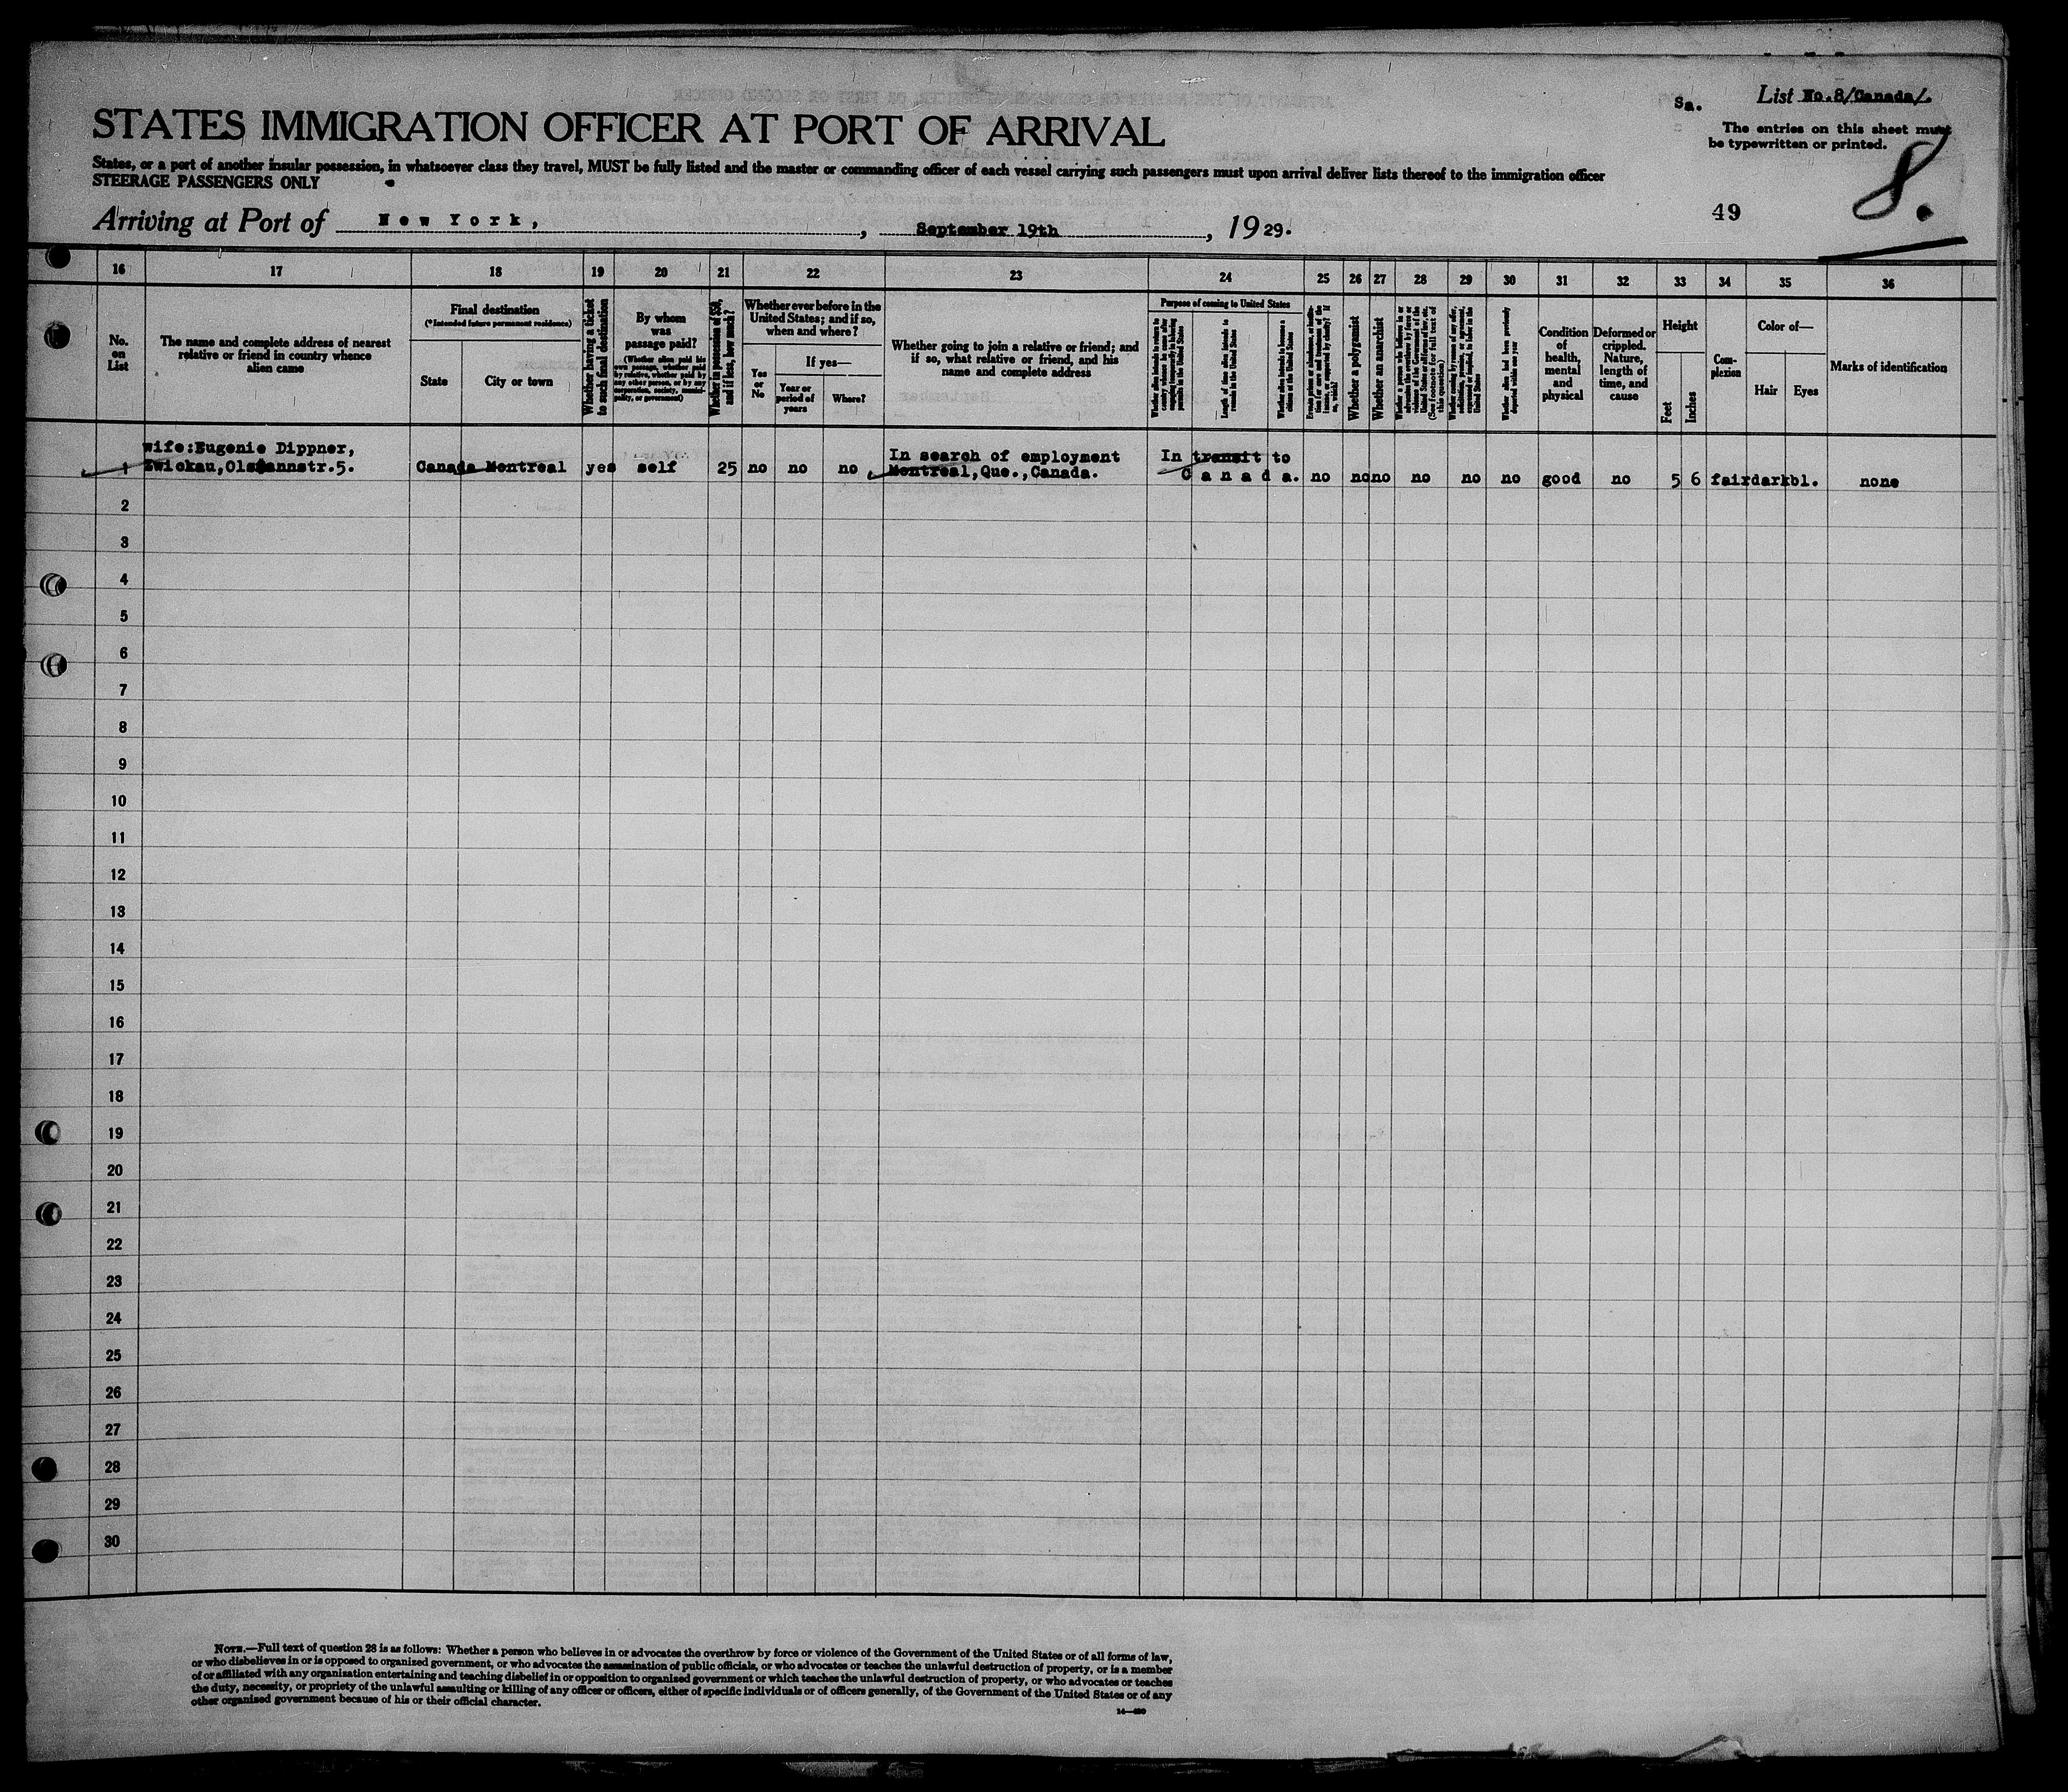 Sa.
List No.8/Canada/.
STATES IMMIGRATION OFFICER AT PORT OF ARRIVAL
The entries on this sheet must
be typewritten or printed.
States, or a port of another insular possession, in whatsoever class they travel, MUST be fully listed and the master or commanding officer of each vessel carrying such passengers must upon arrival deliver lists thereof to the immigration officer
STEERAGE PASSENGERS ONLY
49
8.
Arriving at Port of New York, , September 19th , 1929.
16 17 18 19 20 21 22 23 24 25 26 27 28 29 30 31 32 33 34 35 36
No.
on
List
The name and complete address of nearest
relative or friend in country whence
alien came
Final destination
(*Intended future permanent residence)
State
City or town
Whether having a ticket
to such final destination
By whom
was
passage paid?
(Whether alien paid his
own passage, whether paid
by relative, whether paid by
any other person, or by any
corporation, society, munici-
pality, or government)
Whether in possession of $50,
and if less, how much?
Whether ever before in the
United States; and if so,
when and where?
Yes
or
No
If yes—
Year or
period of
years
Where?
Whether going to join a relative or friend; and
if so, what relative or friend, and his
name and complete address
Purpose of coming to United States
Whether alien intends to return to
country whence he came after
engaging temporarily in laboring
pursuits in the United States
Length of time alien intends to
remain in the United States
Whether alien intends to become a
citizen of the United States
Whether a polygamist
Whether an anarchist
(See footnote for full text of
this question)
Whether alien had been previously
deported within one year
Condition
of
health,
mental
and
physical
Deformed or
crippled.
Nature,
length of
time, and
cause
Height
Feet
Inches
Com-
plexion
Color of—
Hair
Eyes
Marks of identification
wife:Eugenie Dippner,
1 Zwickau,Olsmannstr.5. Canada Montreal yes self 25 no no no
In search of employment
Montreal,Que.,Canada.
In transit to
Canada. no no no no no no good no 5 6 fair dark bl. none
2
3
4
5
6
7
8
9
10
11
12
13
14
15
16
17
18
19
20
21
22
23
24
25
26
27
28
29
30
NOTE.—Full text of question 28 is as follows: Whether a person who believes in or advocates the overthrow by force or violence of the Government of the United States or of all forms of law,
or who disbelieves in or is opposed to organized government, or who advocates the assassination of public officials, or who advocates or teaches the unlawful destruction of property, or is a member
of or affiliated with any organization entertaining and teaching disbelief in or opposition to organised government or which teaches the unlawful destruction of property, or who advocates or teaches
the duty, necessity, or propriety of the unlawful assaulting or killing of any officer or officers, either of specific individuals or of officers generally, of the Government of the United States or of any
other organised government because of his or their official character.